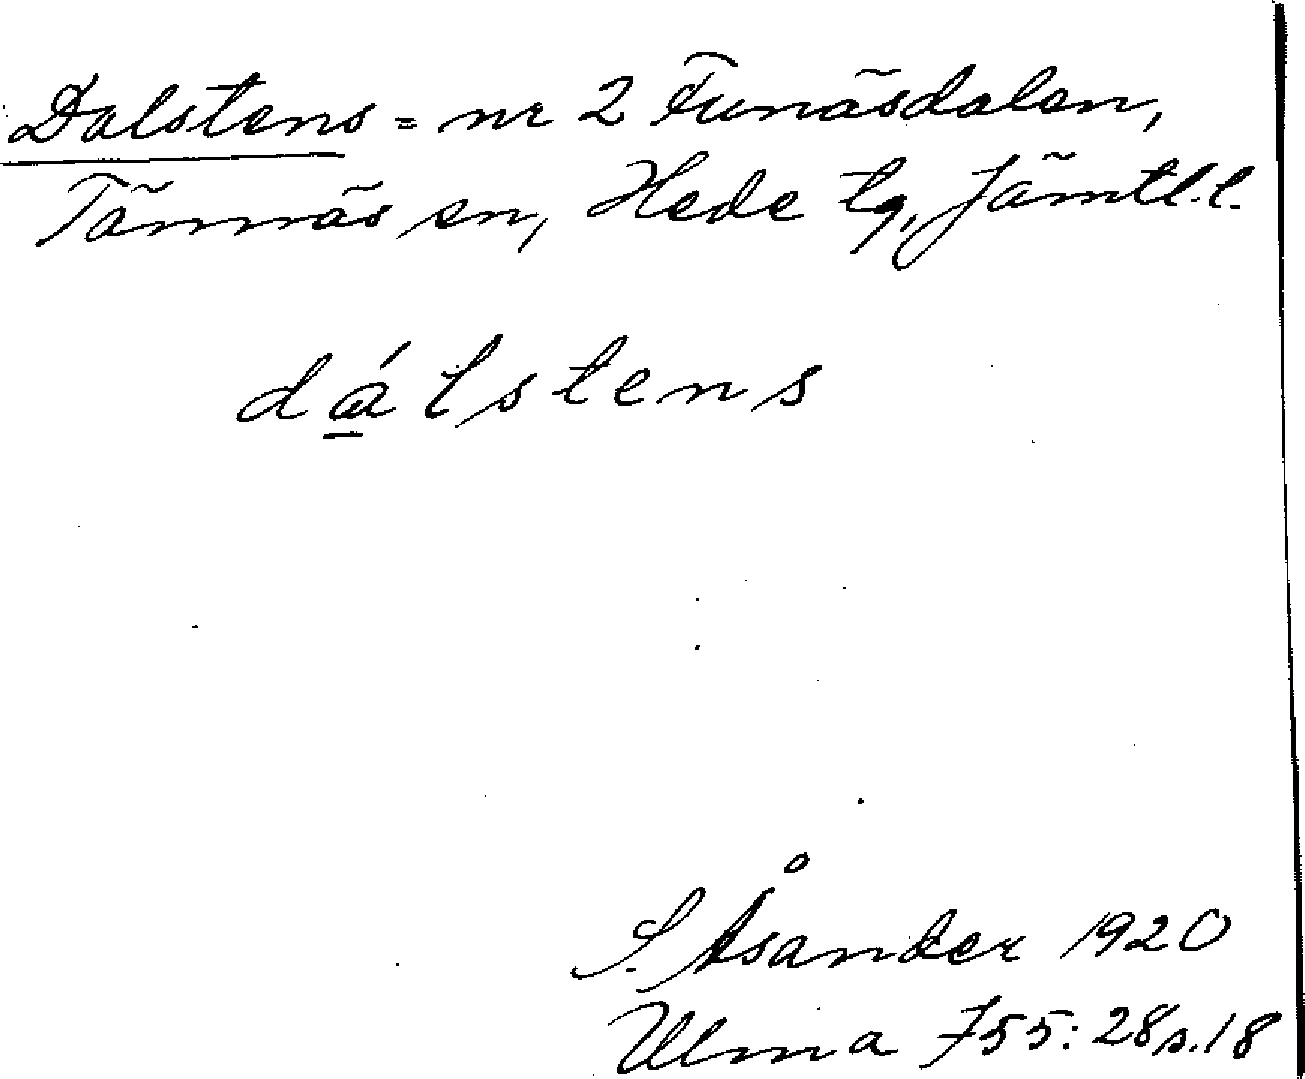 Dalstens = nr 2 Funäsdalen,
Tännäs sn, Hede tg, Jämtl. l.
dá̱lstens
S. Åsander 1920
Ulma 755:28 s. 18